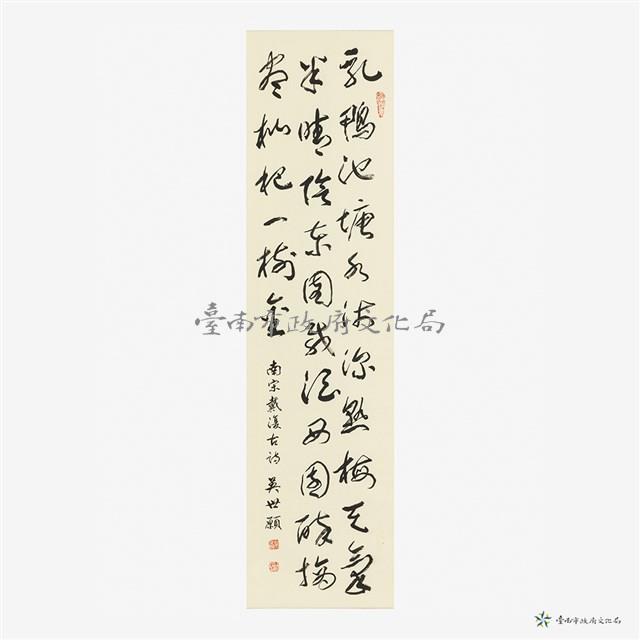 乳鴨池塘水淺深熟梅天氣
半晴陰東園載酒西園醉摘
盡枇杷一樹金
南宋戴復古詩 吳世願
臺南市政府文化局
臺南市政府文化局